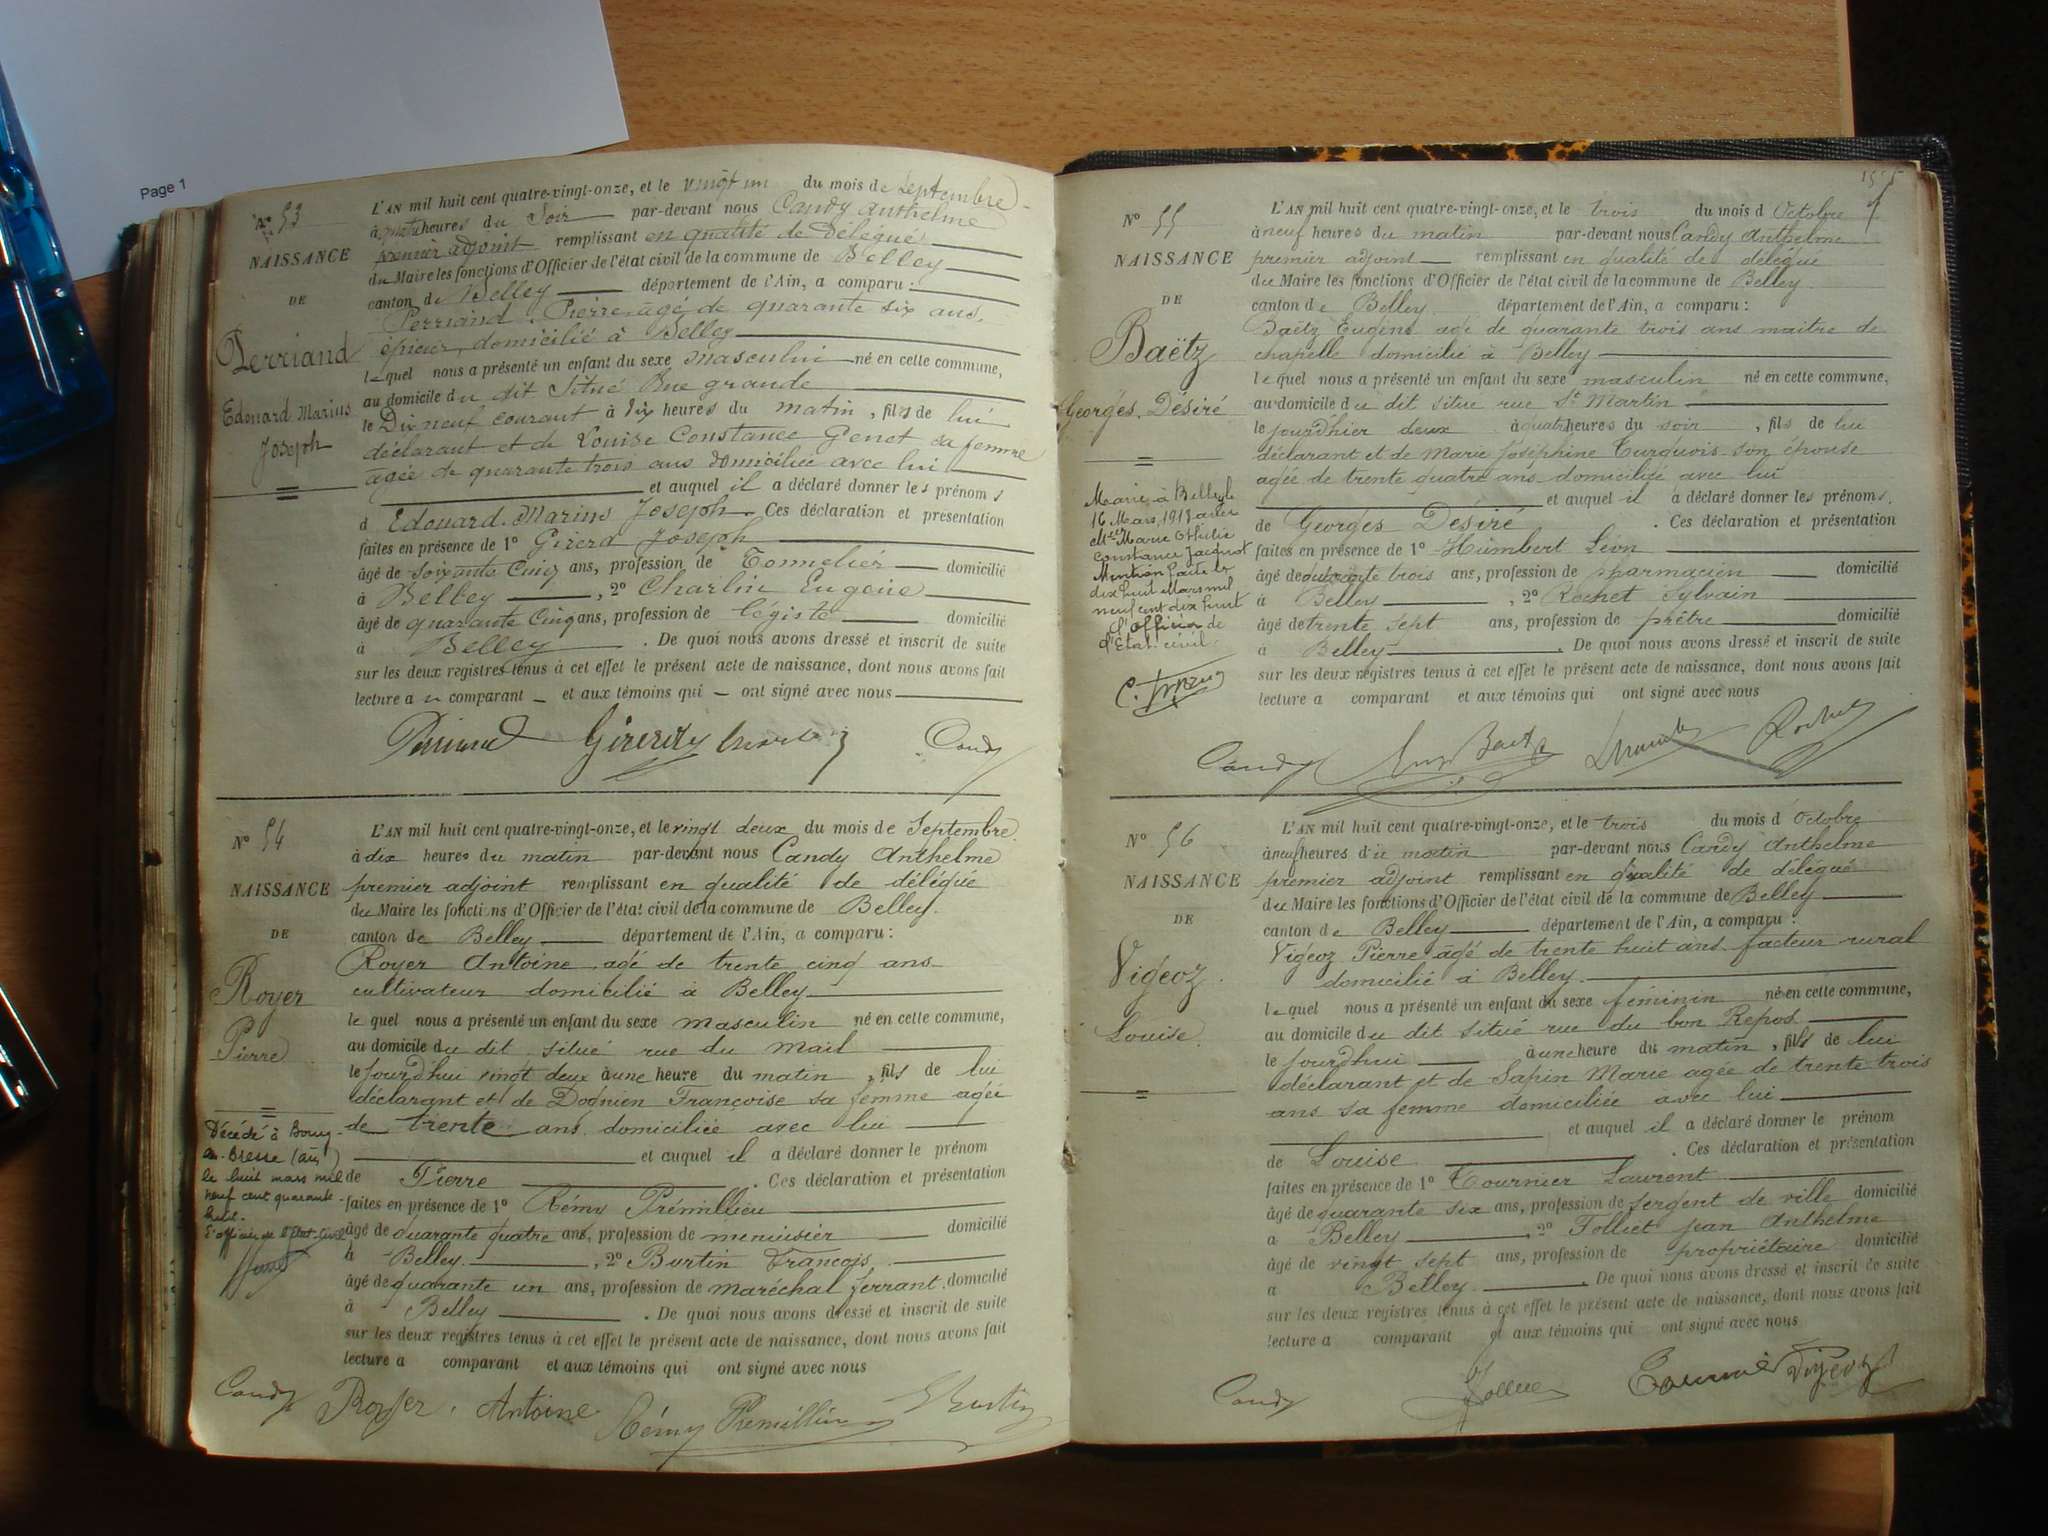 Page 1
N° 53
NAISSANCE
DE
Perriand
Edouard Marius
Joseph
L'AN mil huit cent quatre-vingt-onze, et le vingt un du mois de Septembre
à quatre heures du Soir par-devant nous Candy Anthelme
premier adjoint remplissant en qualité de délégué
du Maire les fonctions d'Officier de l'état civil de la commune de Belley
canton de Belley département de l'Ain, a comparu :
Perriand Pierre âgé de quarante six ans,
épicier, domicilié à Belley
lequel nous a présenté un enfant du sexe masculin né en cette commune,
au domicile du dit Situé Rue grande
le Dix neuf courant à dix heures du matin, fils de lui
déclarant et de Louise Constance Genet sa femme
âgée de quarante trois ans domiciliée avec lui
et auquel il a déclaré donner les prénoms
d Edouard Marius Joseph. Ces déclaration et présentation
faites en présence de 1° Girerd Joseph
âgé de soixante Cinq ans, profession de Tonnelier domicilié
à Belley, 2° Charlin Eugène
âgé de quarante Cinq ans, profession de légiste domicilié
à Belley. De quoi nous avons dressé et inscrit de suite
sur les deux registres tenus à cet effet le présent acte de naissance, dont nous avons fait
lecture au comparant et aux témoins qui ont signé avec nous
Perriand Girerd Candy
N° 54
NAISSANCE
DE
Royer
Pierre
Décédé à Bourg-
en-Bresse (Ain)
le huit mars mil
neuf cent quarante-
huit.
L'officier de l'état-civil
L'AN mil huit cent quatre-vingt-onze, et le vingt deux du mois de Septembre
à dix heures du matin par-devant nous Candy Anthelme
premier adjoint remplissant en qualité de délégué
du Maire les fonctions d'Officier de l'état civil de la commune de Belley.
canton de Belley département de l'Ain, a comparu :
Royer Antoine agé de trente cinq ans
cultivateur domicilié à Belley
lequel nous a présenté un enfant du sexe masculin né en cette commune,
au domicile du dit situé rue du Mail
le jourd'hui vingt deux à une heure du matin, fils de lui
déclarant et de Dognien Françoise sa femme agée
de trente ans domiciliée avec lui
et auquel il a déclaré donner le prénom
de Pierre. Ces déclaration et présentation
faites en présence de 1° Rémy Prémillieu
âgé de quarante quatre ans, profession de menuisier domicilié
à Belley, 2° Burtin François
âgé de quarante un ans, profession de maréchal ferrant domicilié
à Belley. De quoi nous avons dressé et inscrit de suite
sur les deux registres tenus à cet effet le présent acte de naissance, dont nous avons fait
lecture a comparant et aux témoins qui ont signé avec nous
Candy Royer Antoine Rémy Prémillieu Burtin
N° 55
NAISSANCE
DE
Baëtz
Georges Désiré
Marié à Belley le
16 Mars 1918 avec
Melle Marie Othilie
Constance Jacquot
Mention faite le
dix huit Mars mil
neuf cent dix huit
L'Officier de
l'Etat civil.
L'AN mil huit cent quatre-vingt-onze, et le trois du mois d Octobre
à neuf heures du matin par-devant nous Candy Anthelme
premier adjoint remplissant en qualité de délégué
du Maire les fonctions d'Officier de l'état civil de la commune de Belley.
canton de Belley département de l'Ain, a comparu :
Baëtz Eugène agé de quarante trois ans maitre de
chapelle domicilié à Belley
lequel nous a présenté un enfant du sexe masculin né en cette commune,
au domicile du dit situé rue St Martin
le jourd'hier deux à quatre heures du soir, fils de lui
déclarant et de Marie Joséphine Turquois son épouse
agée de trente quatre ans domiciliée avec lui
et auquel il a déclaré donner les prénoms
de Georges Désiré. Ces déclaration et présentation
faites en présence de 1° Humbert Léon
âgé de quarante trois ans, profession de pharmacien domicilié
à Belley, 2° Rochet Sylvain
âgé de trente sept ans, profession de prêtre domicilié
à Belley. De quoi nous avons dressé et inscrit de suite
sur les deux registres tenus à cet effet le présent acte de naissance, dont nous avons fait
lecture a comparant et aux témoins qui ont signé avec nous
Candy Eug Baetz Humbert Rochet
N° 56
NAISSANCE
DE
Vigeoz
Louise
L'AN mil huit cent quatre-vingt-onze, et le trois du mois d Octobre
à neuf heures du matin par-devant nous Candy Anthelme
premier adjoint remplissant en qualité de délégué
du Maire les fonctions d'Officier de l'état civil de la commune de Belley
canton de Belley département de l'Ain, a comparu :
Vigeoz Pierre âgé de trente huit ans facteur rural
domicilié à Belley
lequel nous a présenté un enfant du sexe féminin né en cette commune,
au domicile du dit situé rue du bon Repos
le jourd'hui à une heure du matin, fils de lui
déclarant et de Sapin Marie agée de trente trois
ans sa femme domiciliée avec lui
et auquel il a déclaré donner le prénom
de Louise. Ces déclaration et présentation
faites en présence de 1° Tournier Laurent
âgé de quarante six ans, profession de sergent de ville domicilié
à Belley, 2° Folliet Jean Anthelme
âgé de vingt sept ans, profession de propriétaire domicilié
a Belley. De quoi nous avons dressé et inscrit de suite
sur les deux registres tenus à cet effet le présent acte de naissance, dont nous avons fait
lecture a comparant et aux témoins qui ont signé avec nous
Candy Folliet Tournier Vigeoz